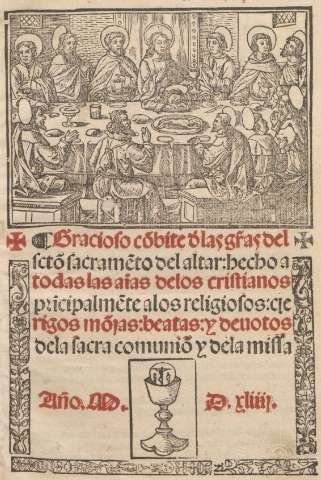 ✠ ¶ Gracioso cõbite d̃ las gr̃as del ✠
sctõ sacramẽto del altar: hecho a
todas las aĩas delos cristianos
pricipalmẽte alos religiosos: cle
rigos mõjas: beatas: y deuotos
dela sacra comuniõ y dela missa
Año. M. D. xliiij.